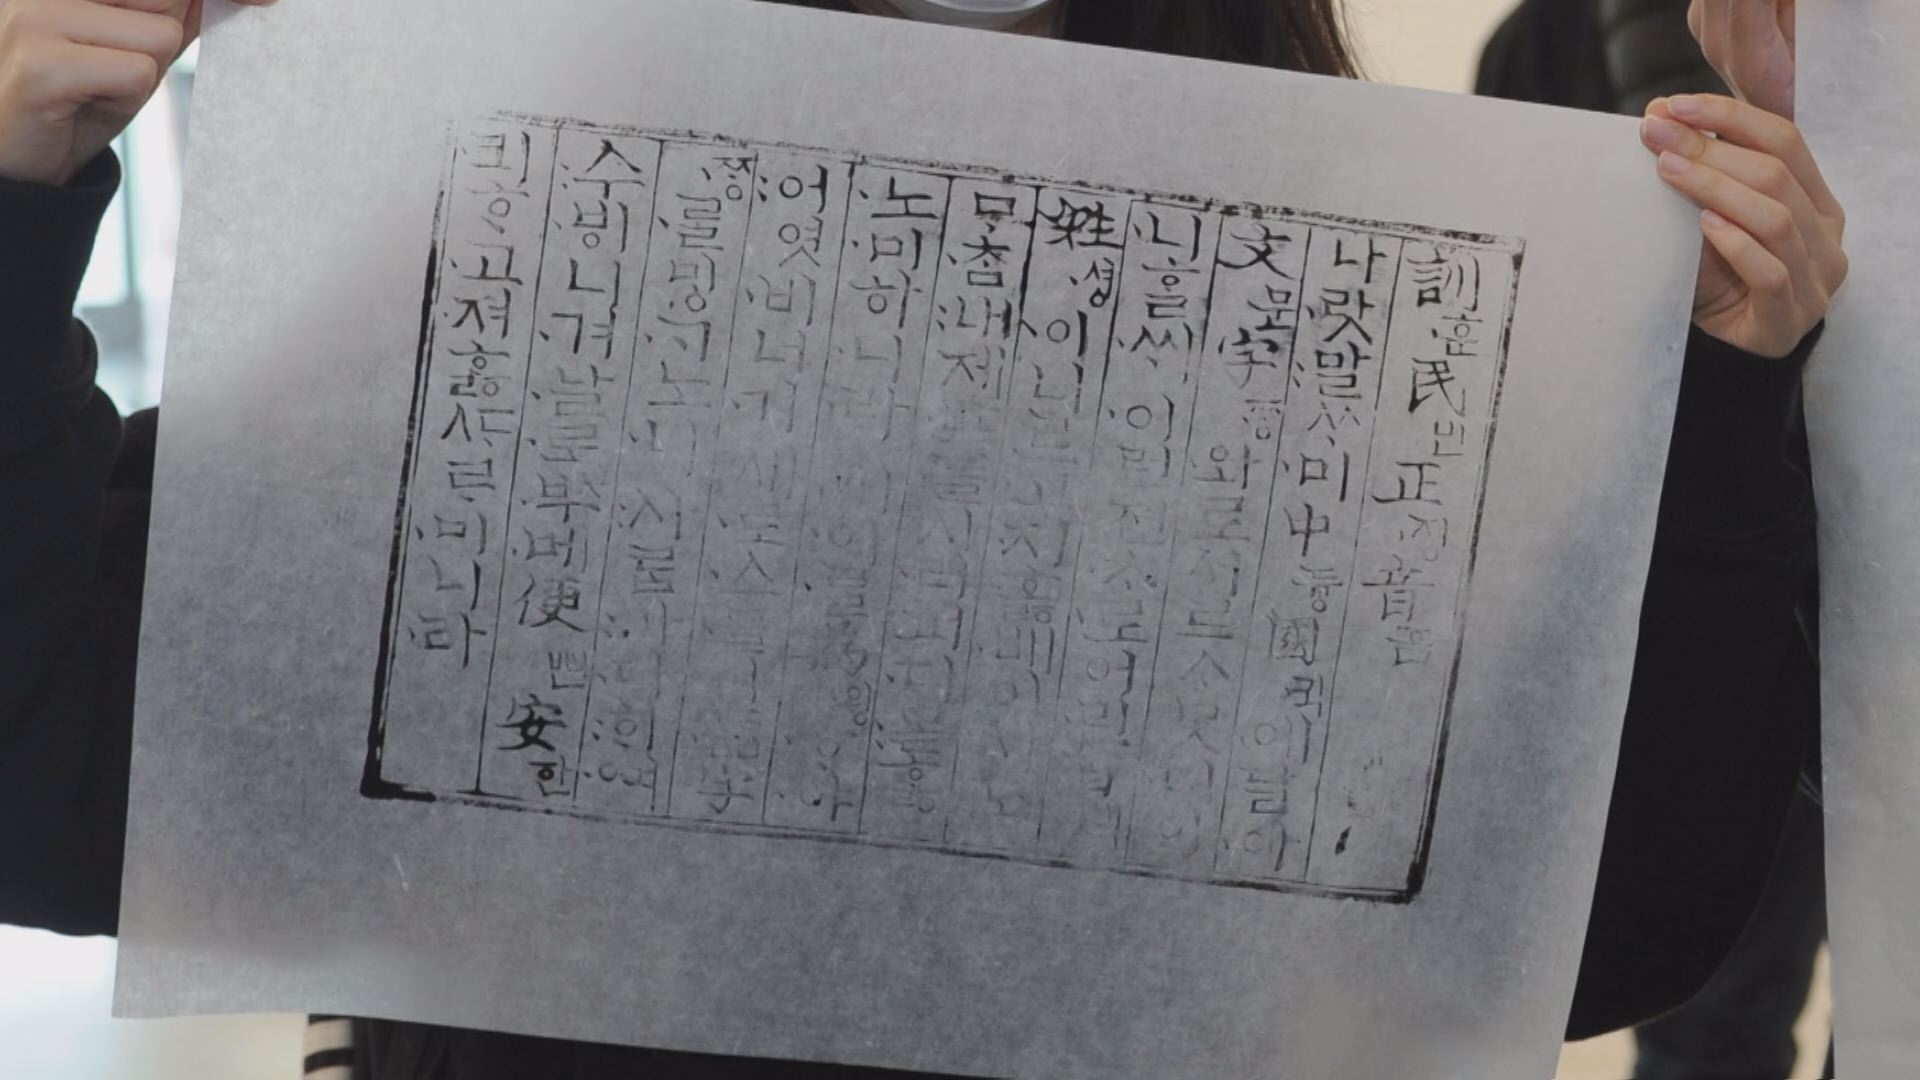 訓훈民민正정音음
나랏말ᄊᆞ미中듕國귁에달아
文문字ᄍᆞᆼ와로서르ᄉᆞᄆᆞᆺ디아
니ᄒᆞᆯᄊᆡ이런젼ᄎᆞ로어린
姓셩이니르고져호ᇙ배이셔
ᄆᆞᄎᆞᆷ내제ᄠᅳ들시러펴디몯ᄒᆞᇙ
노미하니라이ᄅᆞᆯ爲윙ᄒᆞ야
어엿비너겨새로스믈여듧字
ᄍᆞᆼᄅᆞᆯᄆᆡᇰᄀᆞ노니사ᄅᆞᆷ마다ᄒᆡᅇᅧ
수ᄫᅵ니겨날로ᄡᅮ메便뼌安한
킈ᄒᆞ고져ᄒᆞᇙᄯᆞᄅᆞ미니라